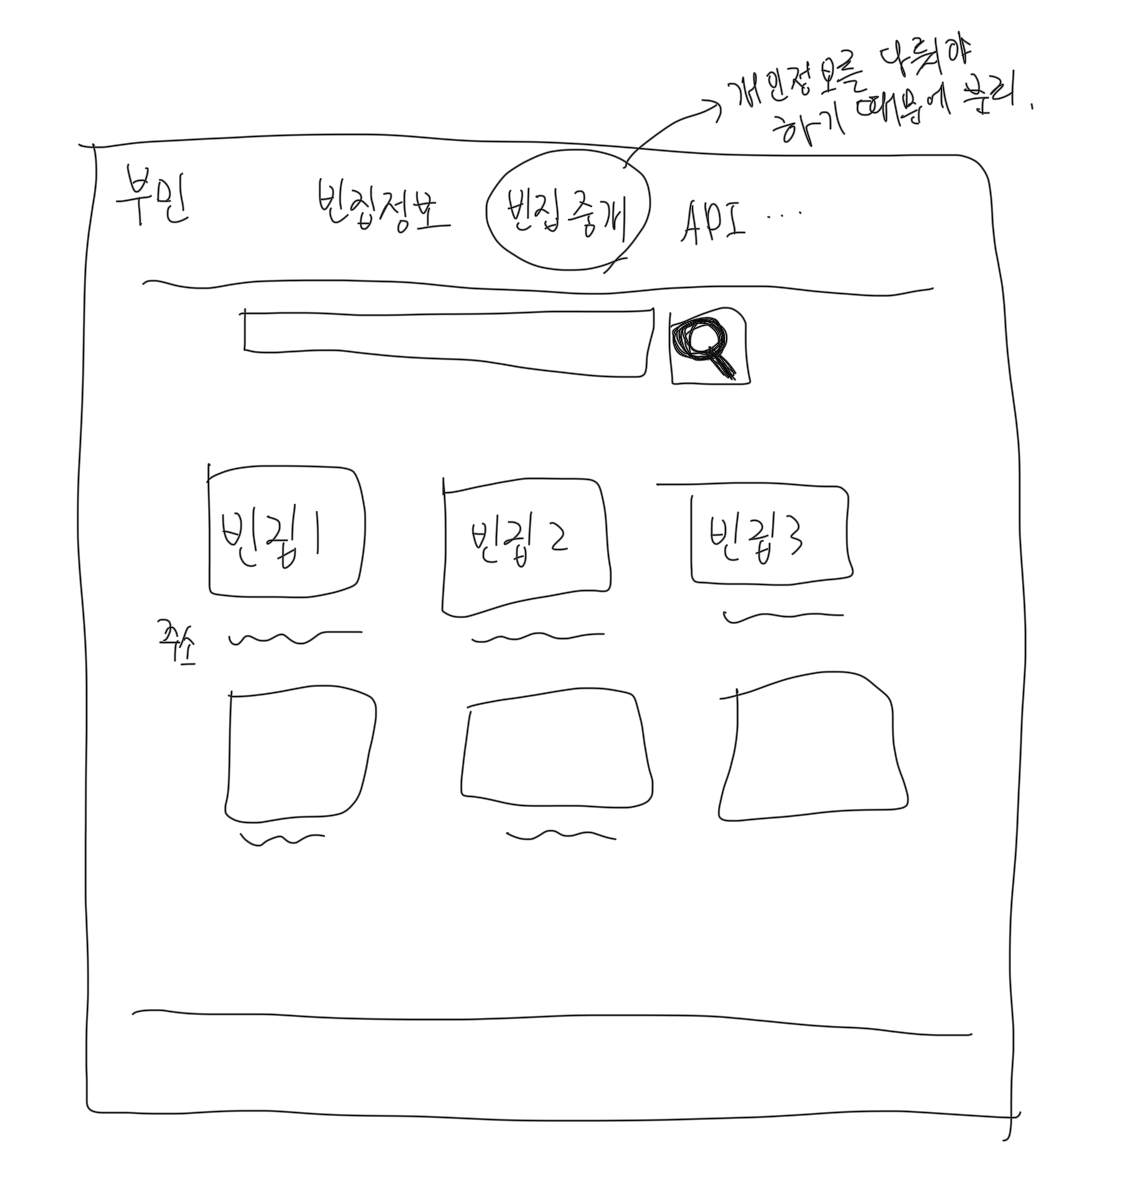 개인정보를 다뤄야
하기 때문에 분리.
부민 빈집정보 빈집중개 API ...
빈집1 빈집2 빈집3
주소